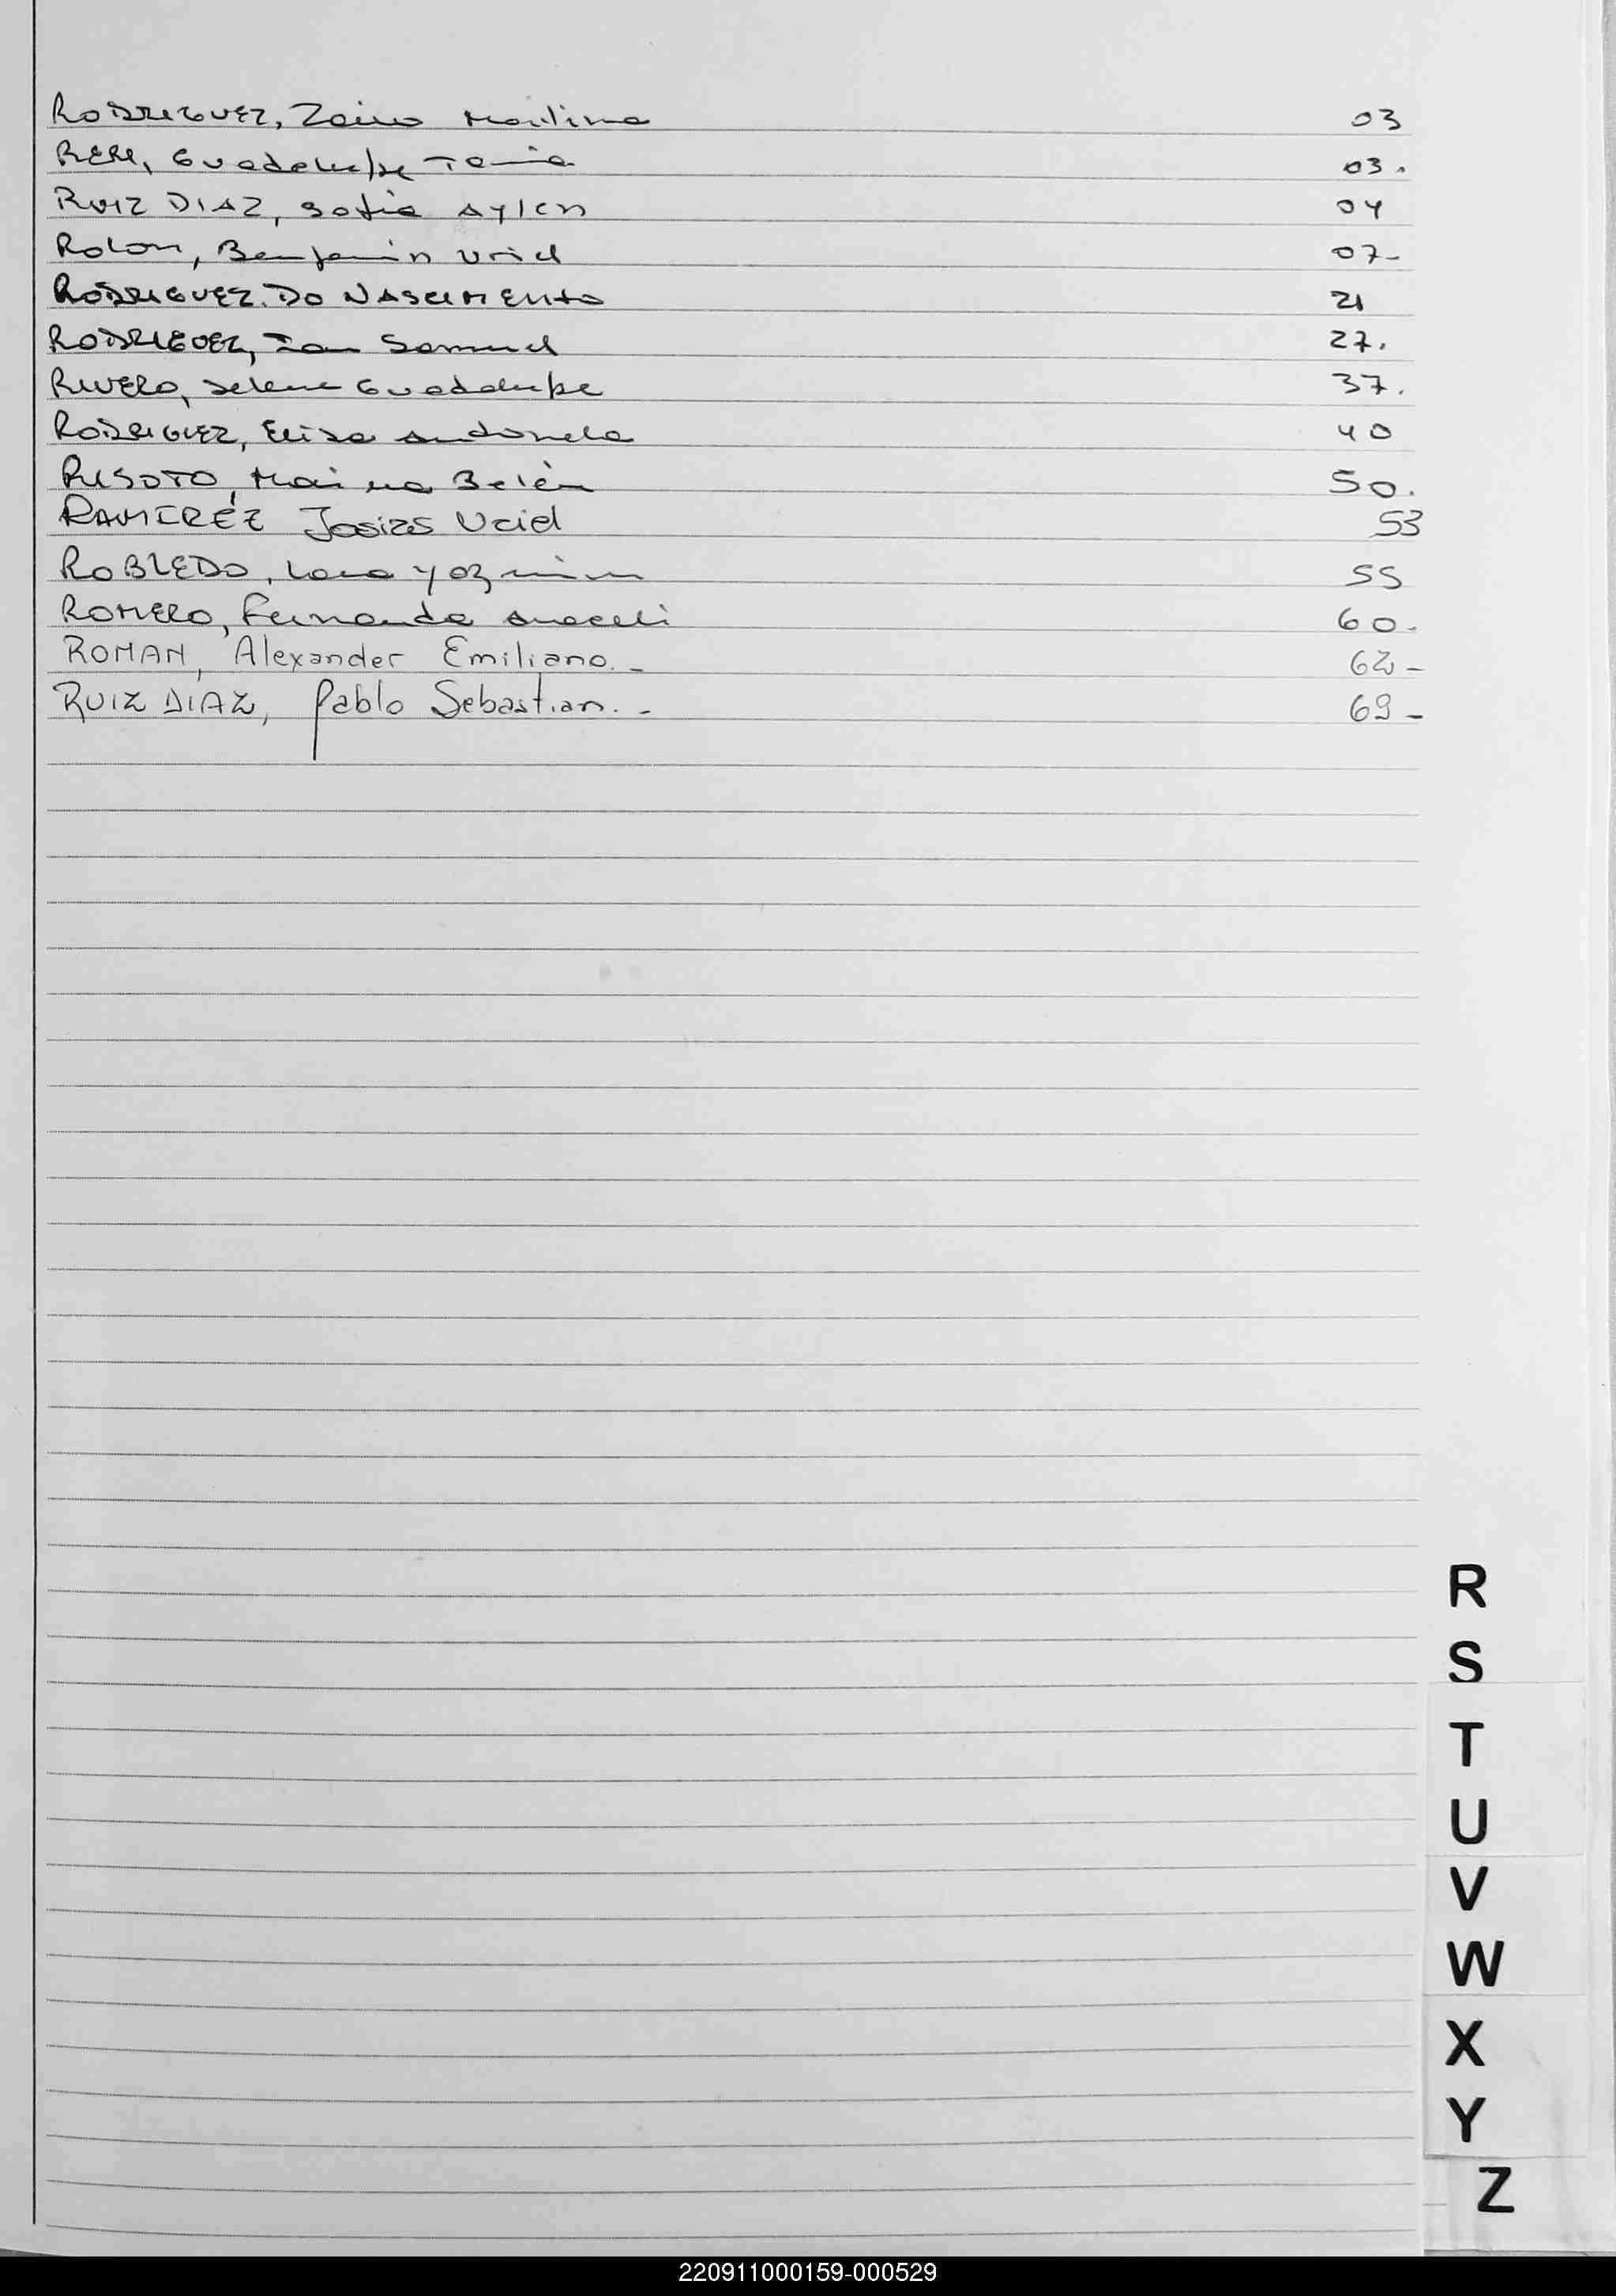 RODRIGUEZ, Zaira Martina 03
Guadalupe Tania 03.
RUIZ DIAZ, Sofia Aylen 04
ROLON, Benjamin Uriel 07-
RODRIGUEZ DO NASCIMENTO 21
RODRIGUEZ, Ian Samuel 27.
RIVERO, Selene Guadalupe 37.
RODRIGUEZ, Elisa Antonela 40
RISOTO, Maira Belén 50.
RAMIREZ Josias Uriel 53
ROBLEDO, Lara Yazmin 55
ROMERO, Fernanda Araceli 60-
ROMAN, Alexander Emiliano.- 62-
RUIZ DIAZ, Pablo Sebastian.- 69-
R
S
T
U
V
W
X
Y
Z
220911000159-000529